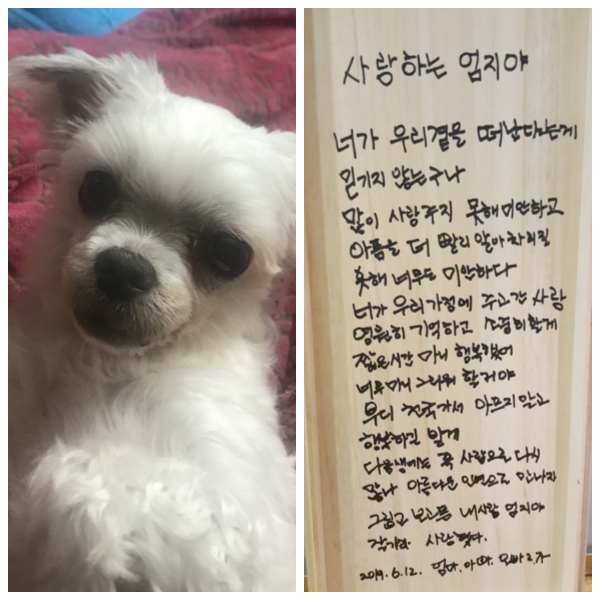 사랑하는 엄지야
너가 우리곁을 떠난다는게
믿기지 않는구나
많이 사랑주지 못해 미안하고
아픔을 더 빨리 알아차리질
못해 너무도 미안하다
너가 우리가정에 주고간 사랑
영원히 기억하고 소중히할게
짧은시간 마니 행복했어
너무마니 그리워 할거야
부디 천국가서 아프지말고
행복하길 빌게
다음생에는 꼭 사람으로 다시
만나 아름다운 인연으로 만나자
그립고 보고픈 내사랑 엄지야
잘가라. 사랑했다.
2019.6.12. 엄마.아빠. 오빠